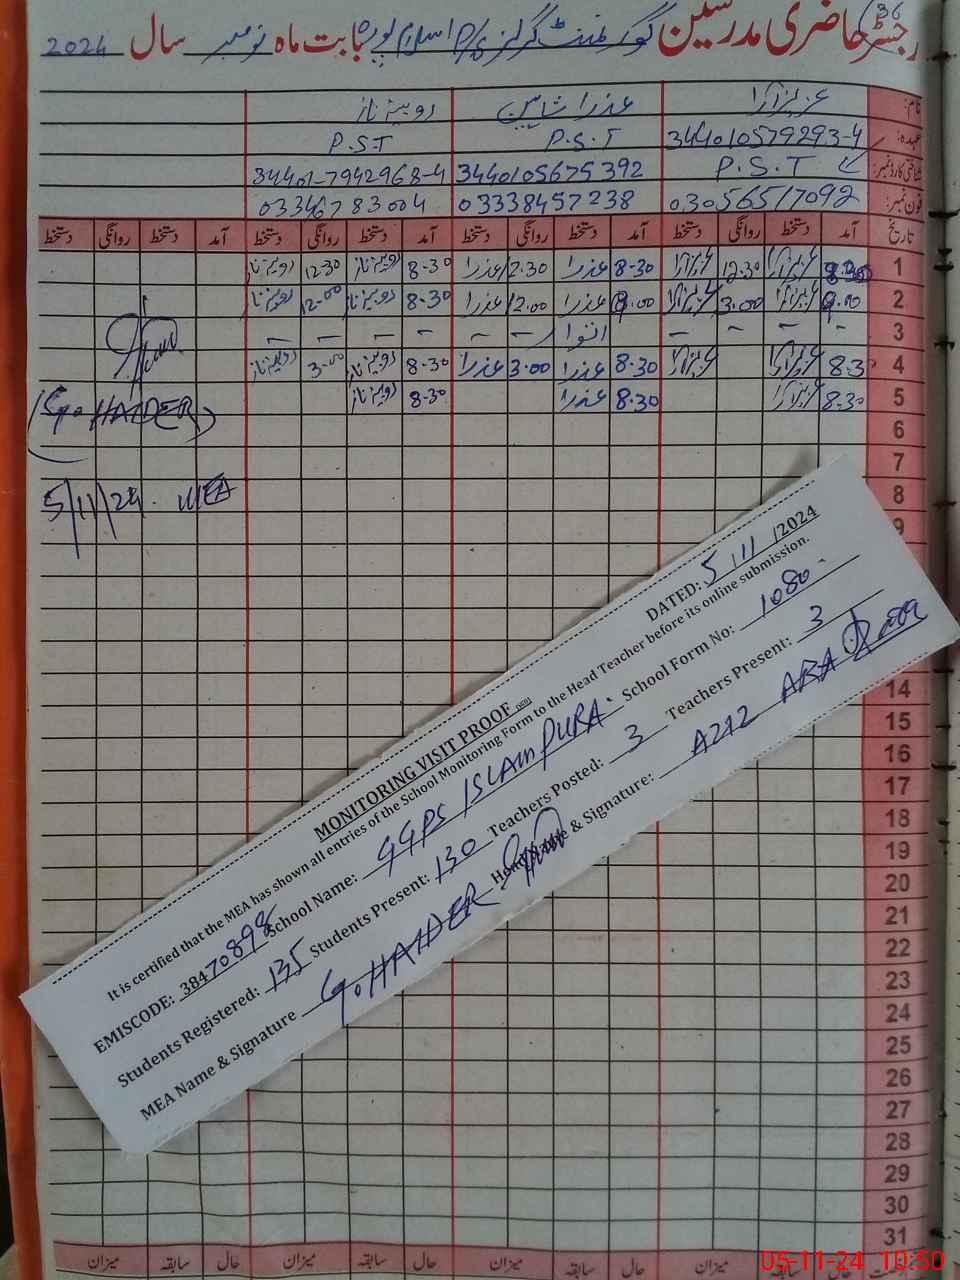 36
رجسٹر حاضری مدرسین گورنمنٹ گرلز P/S اسلام پورہ بابت ماہ نومبر سال 2024
نام: عزیز آرا عذرا شاہین روبینہ ناز
عہدہ: 34401057929 3-4 P.S.T P.S.T
شناختی کارڈ نمبر: P.S.T 3440105675392 34401-7942968-4
فون نمبر: 03056517092 03338457238 03346783004
تاریخ آمد دستخط روانگی دستخط آمد دستخط روانگی دستخط آمد دستخط روانگی دستخط آمد دستخط روانگی دستخط
1 8-30 عزیز آرا 12.30 عزیز آرا 8-30 عذرا 12.30 عذرا 8-30 روبینہ ناز 12-30 روبینہ ناز
2 9.00 عزیز آرا 3.00 عزیز آرا 9.00 عذرا 12.00 عذرا 8.30 روبینہ ناز 12-00 روبینہ ناز
3 - - - - اتوار - - - - - -
4 8.30 عزیز آرا عزیز آرا 8.30 عذرا 3.00 عذرا 8.30 روبینہ ناز 3.00 روبینہ ناز
5 8-30 عزیز آرا 8.30 عذرا 8-30 روبینہ ناز
(G. HAIDER)
6
7
8
5/11/24. MEA
9
DATED: 5/11/2024
MONITORING VISIT PROOF
It is certified that the MEA has shown all entries of the School Monitoring Form to the Head Teacher before its online submission.
EMISCODE: 38470898 School Name: GGPS ISLAMPURA. School Form No: 1080
Students Registered: 135 Students Present: 130 Teachers Posted: 3 Teachers Present: 3
MEA Name & Signature G. HAIDER Name & Signature: AZIZ ARA
14
15
16
17
18
19
20
21
22
23
24
25
26
27
28
29
30
31
حال سابقہ میزان حال سابقہ میزان حال سابقہ میزان حال سابقہ میزان
05-11-24 10:50